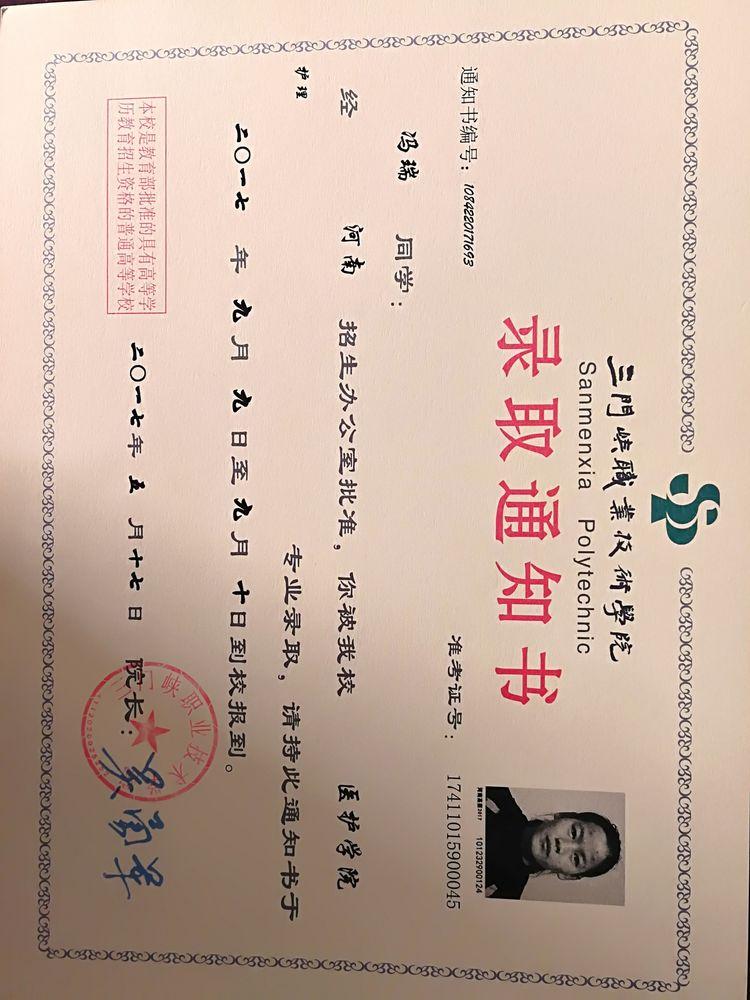 三門峽職業技術學院
Sanmenxia Polytechnic
录取通知书
通知书编号：1084220171693
准考证号：17411015900045
河南高招2017 101232900124
冯瑞 同学：
经 河南 招生办公室批准，你被我校 医护学院
护理 专业录取，请持此通知书于
二〇一七 年 九 月 九 日至 九 月 十 日到校报到。
本校是教育部批准的具有高等学
历教育招生资格的普通高等学校
院长：
二〇一七 年 五 月 十七 日
三门峡职业技术